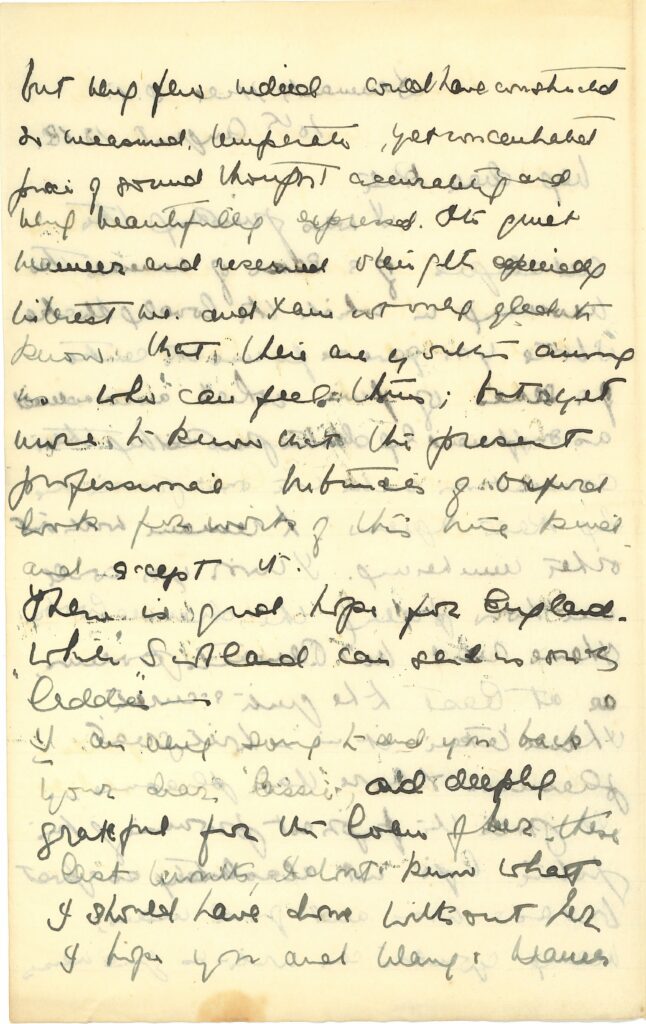 but very few indeed could have constructed
so measured, temperate, yet concentrated
piece of sound thought accurately and
very beautifully expressed. Its quiet
manner and reserved strength especially
interest me. and I am not only glad to
know that, there are youths among
us who can feel thus; but yet
more to know that the present
professional tribunals of Oxford
look for work of this kind
and accept it.
There is good hope for England.
While Scotland can send us such
"laddies"
I am very sorry to send you back
your dear lassie and deeply
grateful for the loan of her. these
last months, I don't know what
I should have done without her
I hope you and